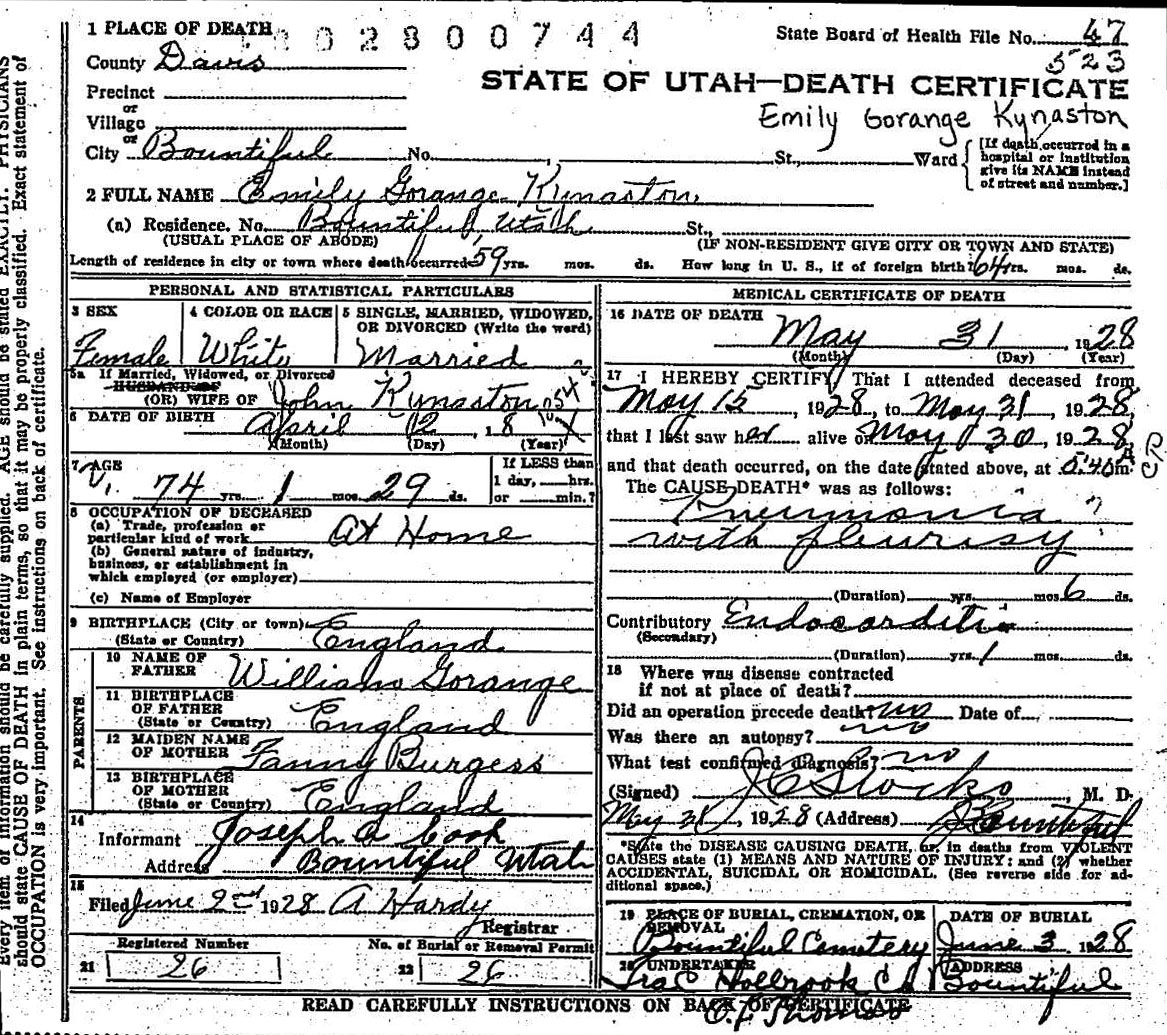 1 PLACE OF DEATH
2 8 0 0 7 4 4
State Board of Health File No. 47
523
County Davis
STATE OF UTAH—DEATH CERTIFICATE
Precinct
or
Village
Emily Gorange Kynaston
or
City Bountiful No. , St., Ward
[If death occurred in a
hospital or institution
give its NAME instead
of street and number.]
2 FULL NAME Emily Gorange Kynaston
(a) Residence. No. Bountiful, Utah St.,
(USUAL PLACE OF ABODE) (IF NON-RESIDENT GIVE CITY OR TOWN AND STATE)
Length of residence in city or town where death occurred 59 yrs. mos. ds. How long in U. S., if of foreign birth? 64 yrs. mos. ds.
PERSONAL AND STATISTICAL PARTICULARS
3 SEX
Female
4 COLOR OR RACE
White
5 SINGLE, MARRIED, WIDOWED,
OR DIVORCED (Write the word)
Married
5a If Married, Widowed, or Divorced
HUSBAND OF
(OR) WIFE OF John Kynaston
6 DATE OF BIRTH April 2 , 18
(Month) (Day) (Year)
7 AGE
74 yrs. 1 mos. 29 ds.
If LESS than
1 day, hrs.
or min.?
8 OCCUPATION OF DECEASED
(a) Trade, profession or
particular kind of work At Home
(b) General nature of industry,
business, or establishment in
which employed (or employer)
(c) Name of Employer
9 BIRTHPLACE (City or town)
(State or Country) England
PARENTS
10 NAME OF
FATHER William Gorange
11 BIRTHPLACE
OF FATHER
(State or Country) England
12 MAIDEN NAME
OF MOTHER Fanny Burgess
13 BIRTHPLACE
OF MOTHER
(State or Country) England
14
Informant Joseph A Cook
Address Bountiful Utah
15
Filed June 2nd 1928 A Hardy
Registrar
Registered Number
21 26
No. of Burial or Removal Permit
22 26
MEDICAL CERTIFICATE OF DEATH
16 DATE OF DEATH
May 31 , 1928
(Month) (Day) (Year)
17 I HEREBY CERTIFY, That I attended deceased from
May 15 , 1928, to May 31 , 1928,
that I last saw her alive on May 30 , 1928,
and that death occurred, on the date stated above, at 5:40 A m.
The CAUSE DEATH* was as follows:
Pneumonia
with pleurisy
(Duration) yrs. mos. 6 ds.
Contributory Endocarditis
(Secondary)
(Duration) yrs. 1 mos. ds.
18 Where was disease contracted
if not at place of death?
Did an operation precede death? no Date of
Was there an autopsy? no
What test confirmed diagnosis? no
(Signed) J C Stocks , M. D.
May 31 , 1928 (Address) Bountiful
*State the DISEASE CAUSING DEATH, or, in deaths from VIOLENT
CAUSES state (1) MEANS AND NATURE OF INJURY; and (2) whether
ACCIDENTAL, SUICIDAL OR HOMICIDAL. (See reverse side for ad-
ditional space.)
19 PLACE OF BURIAL, CREMATION, OR
REMOVAL
Bountiful Cemetery
DATE OF BURIAL
June 3 1928
20 UNDERTAKER
Ira C Holbrook Co
ADDRESS
Bountiful
READ CAREFULLY INSTRUCTIONS ON BACK OF CERTIFICATE
Every item of information should be carefully supplied. AGE should be stated EXACTLY. PHYSICIANS
should state CAUSE OF DEATH in plain terms, so that it may be properly classified. Exact statement of
OCCUPATION is very important. See instructions on back of certificate.